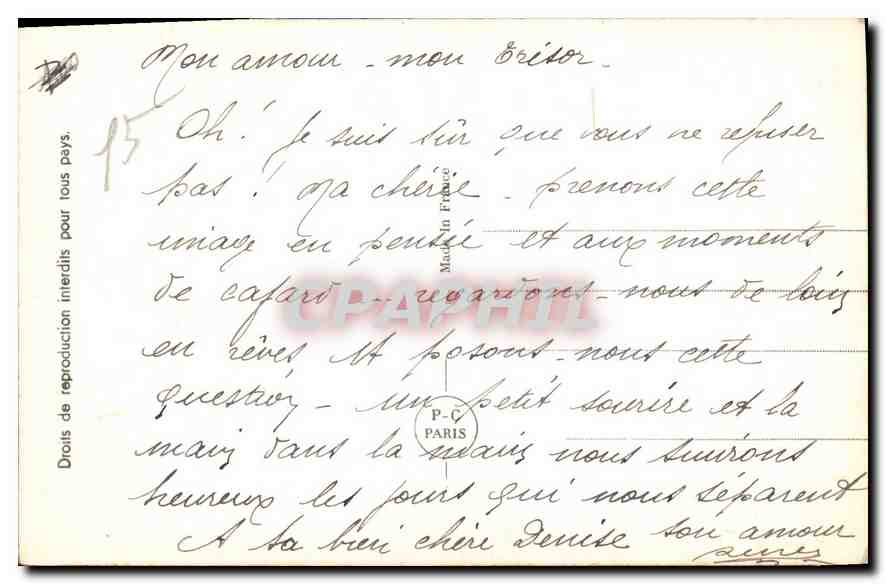 Mon amour - mon trésor -
15
Oh! Je suis sûr que vous ne refuser
pas! Ma chérie - prenons cette
image en pensée et aux moments
de cafard -- regardons-nous de loin
en rêves et posons-nous cette
question - un petit sourire et la
main dans la main nous suivrons
heureux les jours qui nous séparent
A sa bien chère Denise son amour
Droits de reproduction interdits pour tous pays.
Made In France
P-C
PARIS
CPAPHIL